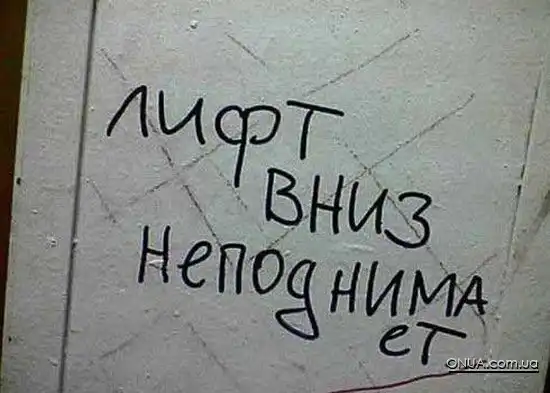 лифт
вниз
неподнима
ет
ONUA.com.ua